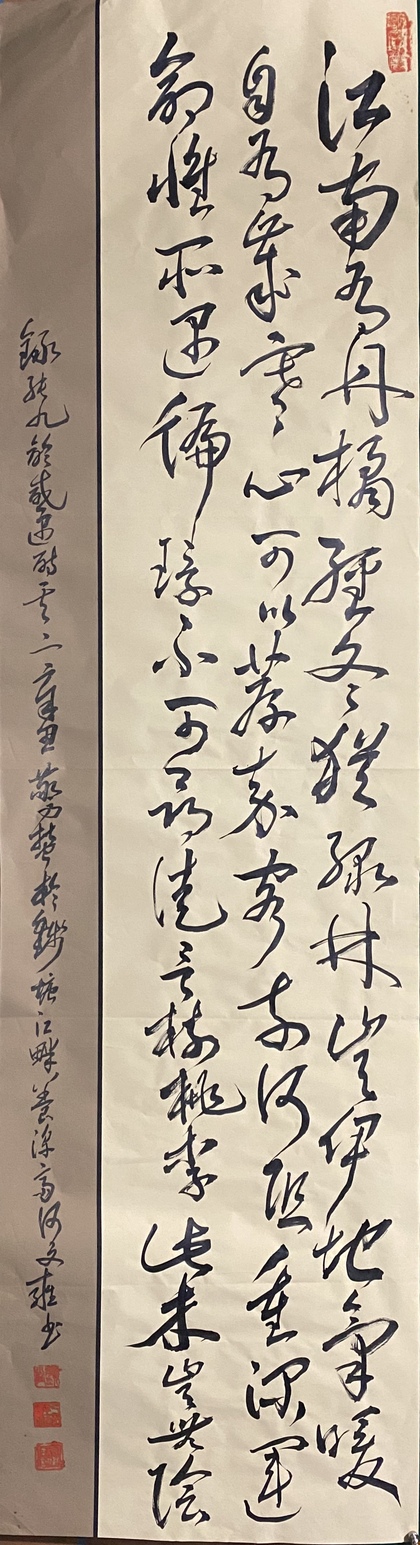 江南有丹橘經冬猶綠林豈伊地氣暖
自有歲寒心可以薦嘉客奈何阻重深運
命惟所遇循環不可尋徒言樹桃李此木豈無陰
錄張九齡感遇詩其二辛丑於錢塘江畔養深齋何文雍書